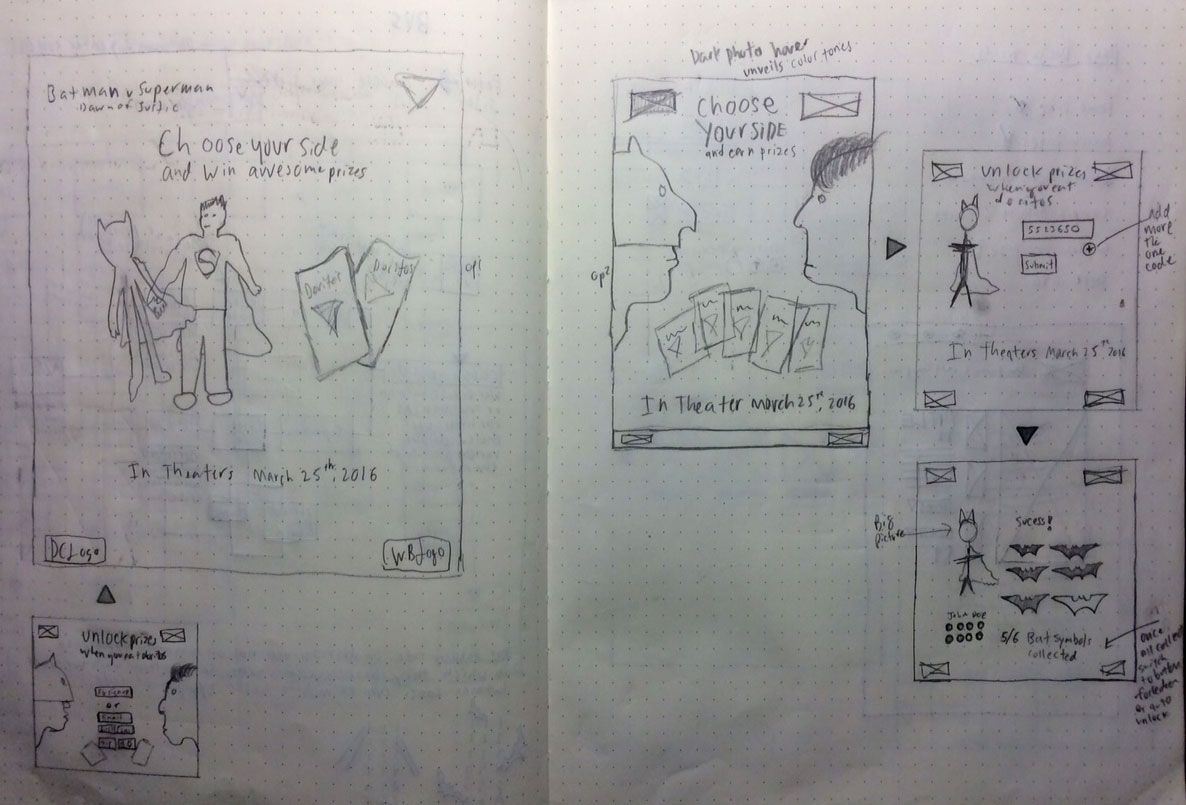 Batman v Superman
Dawn of Justic
Choose your side
and win awesome prizes
Doritos
Doritos
op1
In Theaters March 25th, 2016
DC Logo
WB Logo
Unlock prizes
when you eat doritos
or
Email
BVS
Dark photo hover
unveils color tones
Choose
Your SIDE
and earn prizes
op2
In Theater March 25st, 2016
unlock prizes
when you eat
doritos
Submit
Add
more
than
one
code
In Theaters March 25th 2016
Big
picture
Sucess!
John DOE
5/6 Bat symbols
collected
once
all collect
switch
to button
or auto
unlock